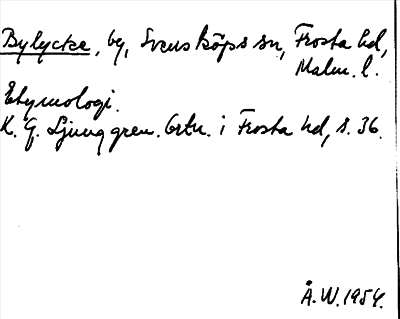 Bylycke, by, Svensköps sn, Frosta hd,
Malm. l.
Etymologi.
K. G. Ljunggren. Ortn. i Frosta hd, s. 36.
Å. W. 1954.